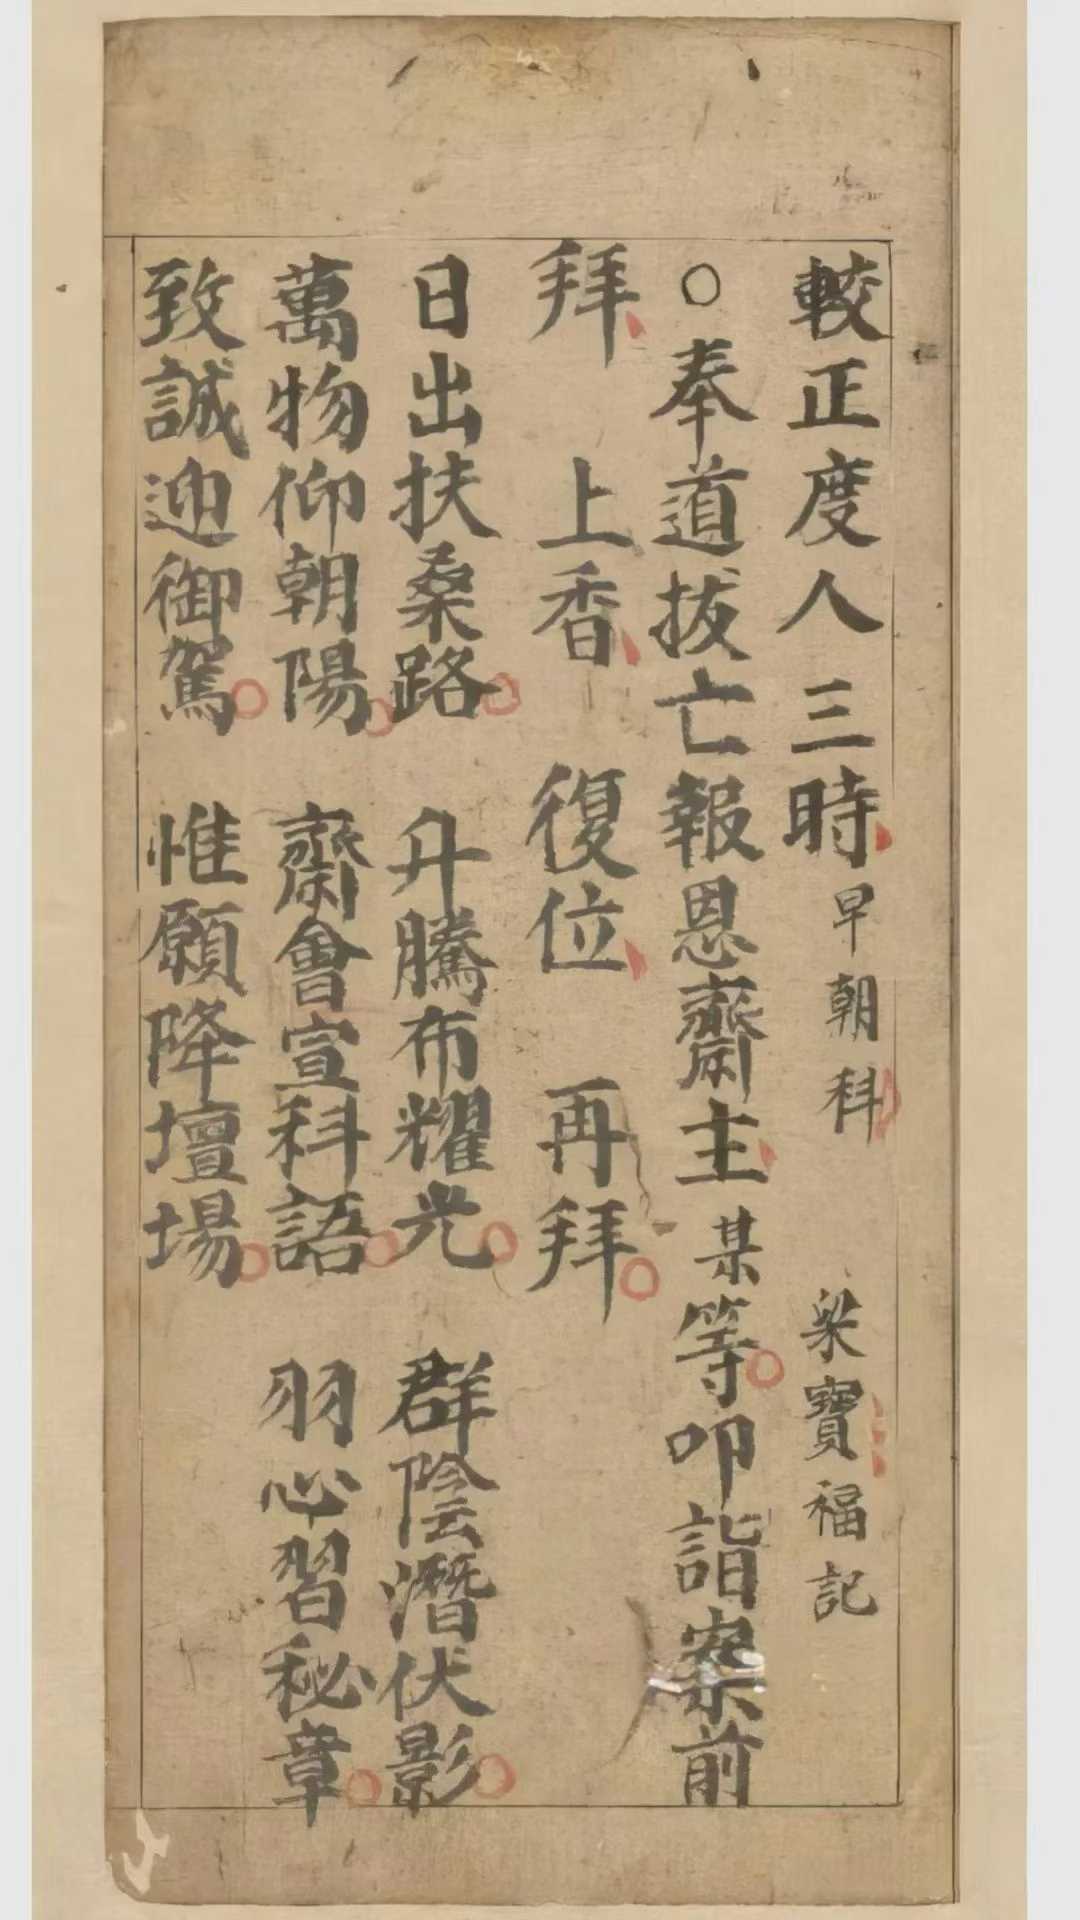 較正度人三時早朝科 梁寶福記
○奉道拔亡報恩齋主某等叩詣案前
拜 上香 復位 再拜
日出扶桑路 升騰布耀光 群陰潛伏影
萬物仰朝陽 齋會宣科語 羽心習秘章
致誠迎御駕 惟願降壇場